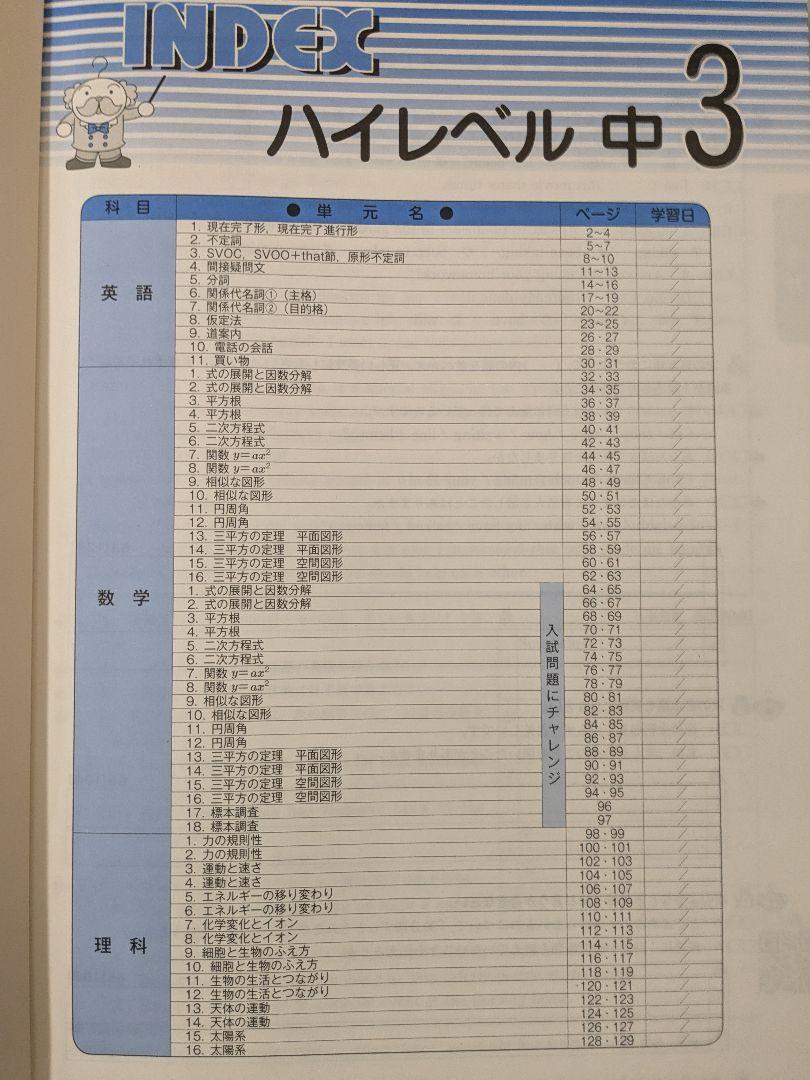 INDEX
ハイレベル 中3
科目 ● 単元名 ● ページ 学習日
英語
1. 現在完了形，現在完了進行形 2～4 ／
2. 不定詞 5～7 ／
3. SVOC，SVOO＋that節，原形不定詞 8～10 ／
4. 間接疑問文 11～13 ／
5. 分詞 14～16 ／
6. 関係代名詞①（主格） 17～19 ／
7. 関係代名詞②（目的格） 20～22 ／
8. 仮定法 23～25 ／
9. 道案内 26・27 ／
10. 電話の会話 28・29 ／
11. 買い物 30・31 ／
数学
1. 式の展開と因数分解 32・33 ／
2. 式の展開と因数分解 34・35 ／
3. 平方根 36・37 ／
4. 平方根 38・39 ／
5. 二次方程式 40・41 ／
6. 二次方程式 42・43 ／
7. 関数 y＝ax² 44・45 ／
8. 関数 y＝ax² 46・47 ／
9. 相似な図形 48・49 ／
10. 相似な図形 50・51 ／
11. 円周角 52・53 ／
12. 円周角 54・55 ／
13. 三平方の定理　平面図形 56・57 ／
14. 三平方の定理　平面図形 58・59 ／
15. 三平方の定理　空間図形 60・61 ／
16. 三平方の定理　空間図形 62・63 ／
入試問題にチャレンジ
1. 式の展開と因数分解 64・65 ／
2. 式の展開と因数分解 66・67 ／
3. 平方根 68・69 ／
4. 平方根 70・71 ／
5. 二次方程式 72・73 ／
6. 二次方程式 74・75 ／
7. 関数 y＝ax² 76・77 ／
8. 関数 y＝ax² 78・79 ／
9. 相似な図形 80・81 ／
10. 相似な図形 82・83 ／
11. 円周角 84・85 ／
12. 円周角 86・87 ／
13. 三平方の定理　平面図形 88・89 ／
14. 三平方の定理　平面図形 90・91 ／
15. 三平方の定理　空間図形 92・93 ／
16. 三平方の定理　空間図形 94・95 ／
17. 標本調査 96 ／
18. 標本調査 97 ／
理科
1. 力の規則性 98・99 ／
2. 力の規則性 100・101 ／
3. 運動と速さ 102・103 ／
4. 運動と速さ 104・105 ／
5. エネルギーの移り変わり 106・107 ／
6. エネルギーの移り変わり 108・109 ／
7. 化学変化とイオン 110・111 ／
8. 化学変化とイオン 112・113 ／
9. 細胞と生物のふえ方 114・115 ／
10. 細胞と生物のふえ方 116・117 ／
11. 生物の生活とつながり 118・119 ／
12. 生物の生活とつながり 120・121 ／
13. 天体の運動 122・123 ／
14. 天体の運動 124・125 ／
15. 太陽系 126・127 ／
16. 太陽系 128・129 ／